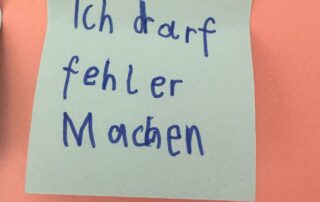 Ich darf
fehler
Machen